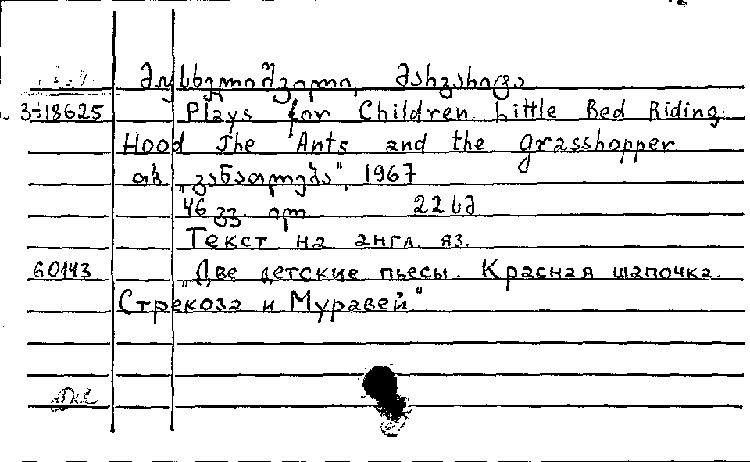 მუსხელიშვილი, მარგარიტა
3-18625 Plays for Children. Little Red Riding
Hood The Ants and the grasshopper
თბ. „განათლება", 1967
46 გვ. 22 სმ
Текст на англ. яз.
60143 „Две детские пьесы. Красная шапочка.
Стрекоза и Муравей"